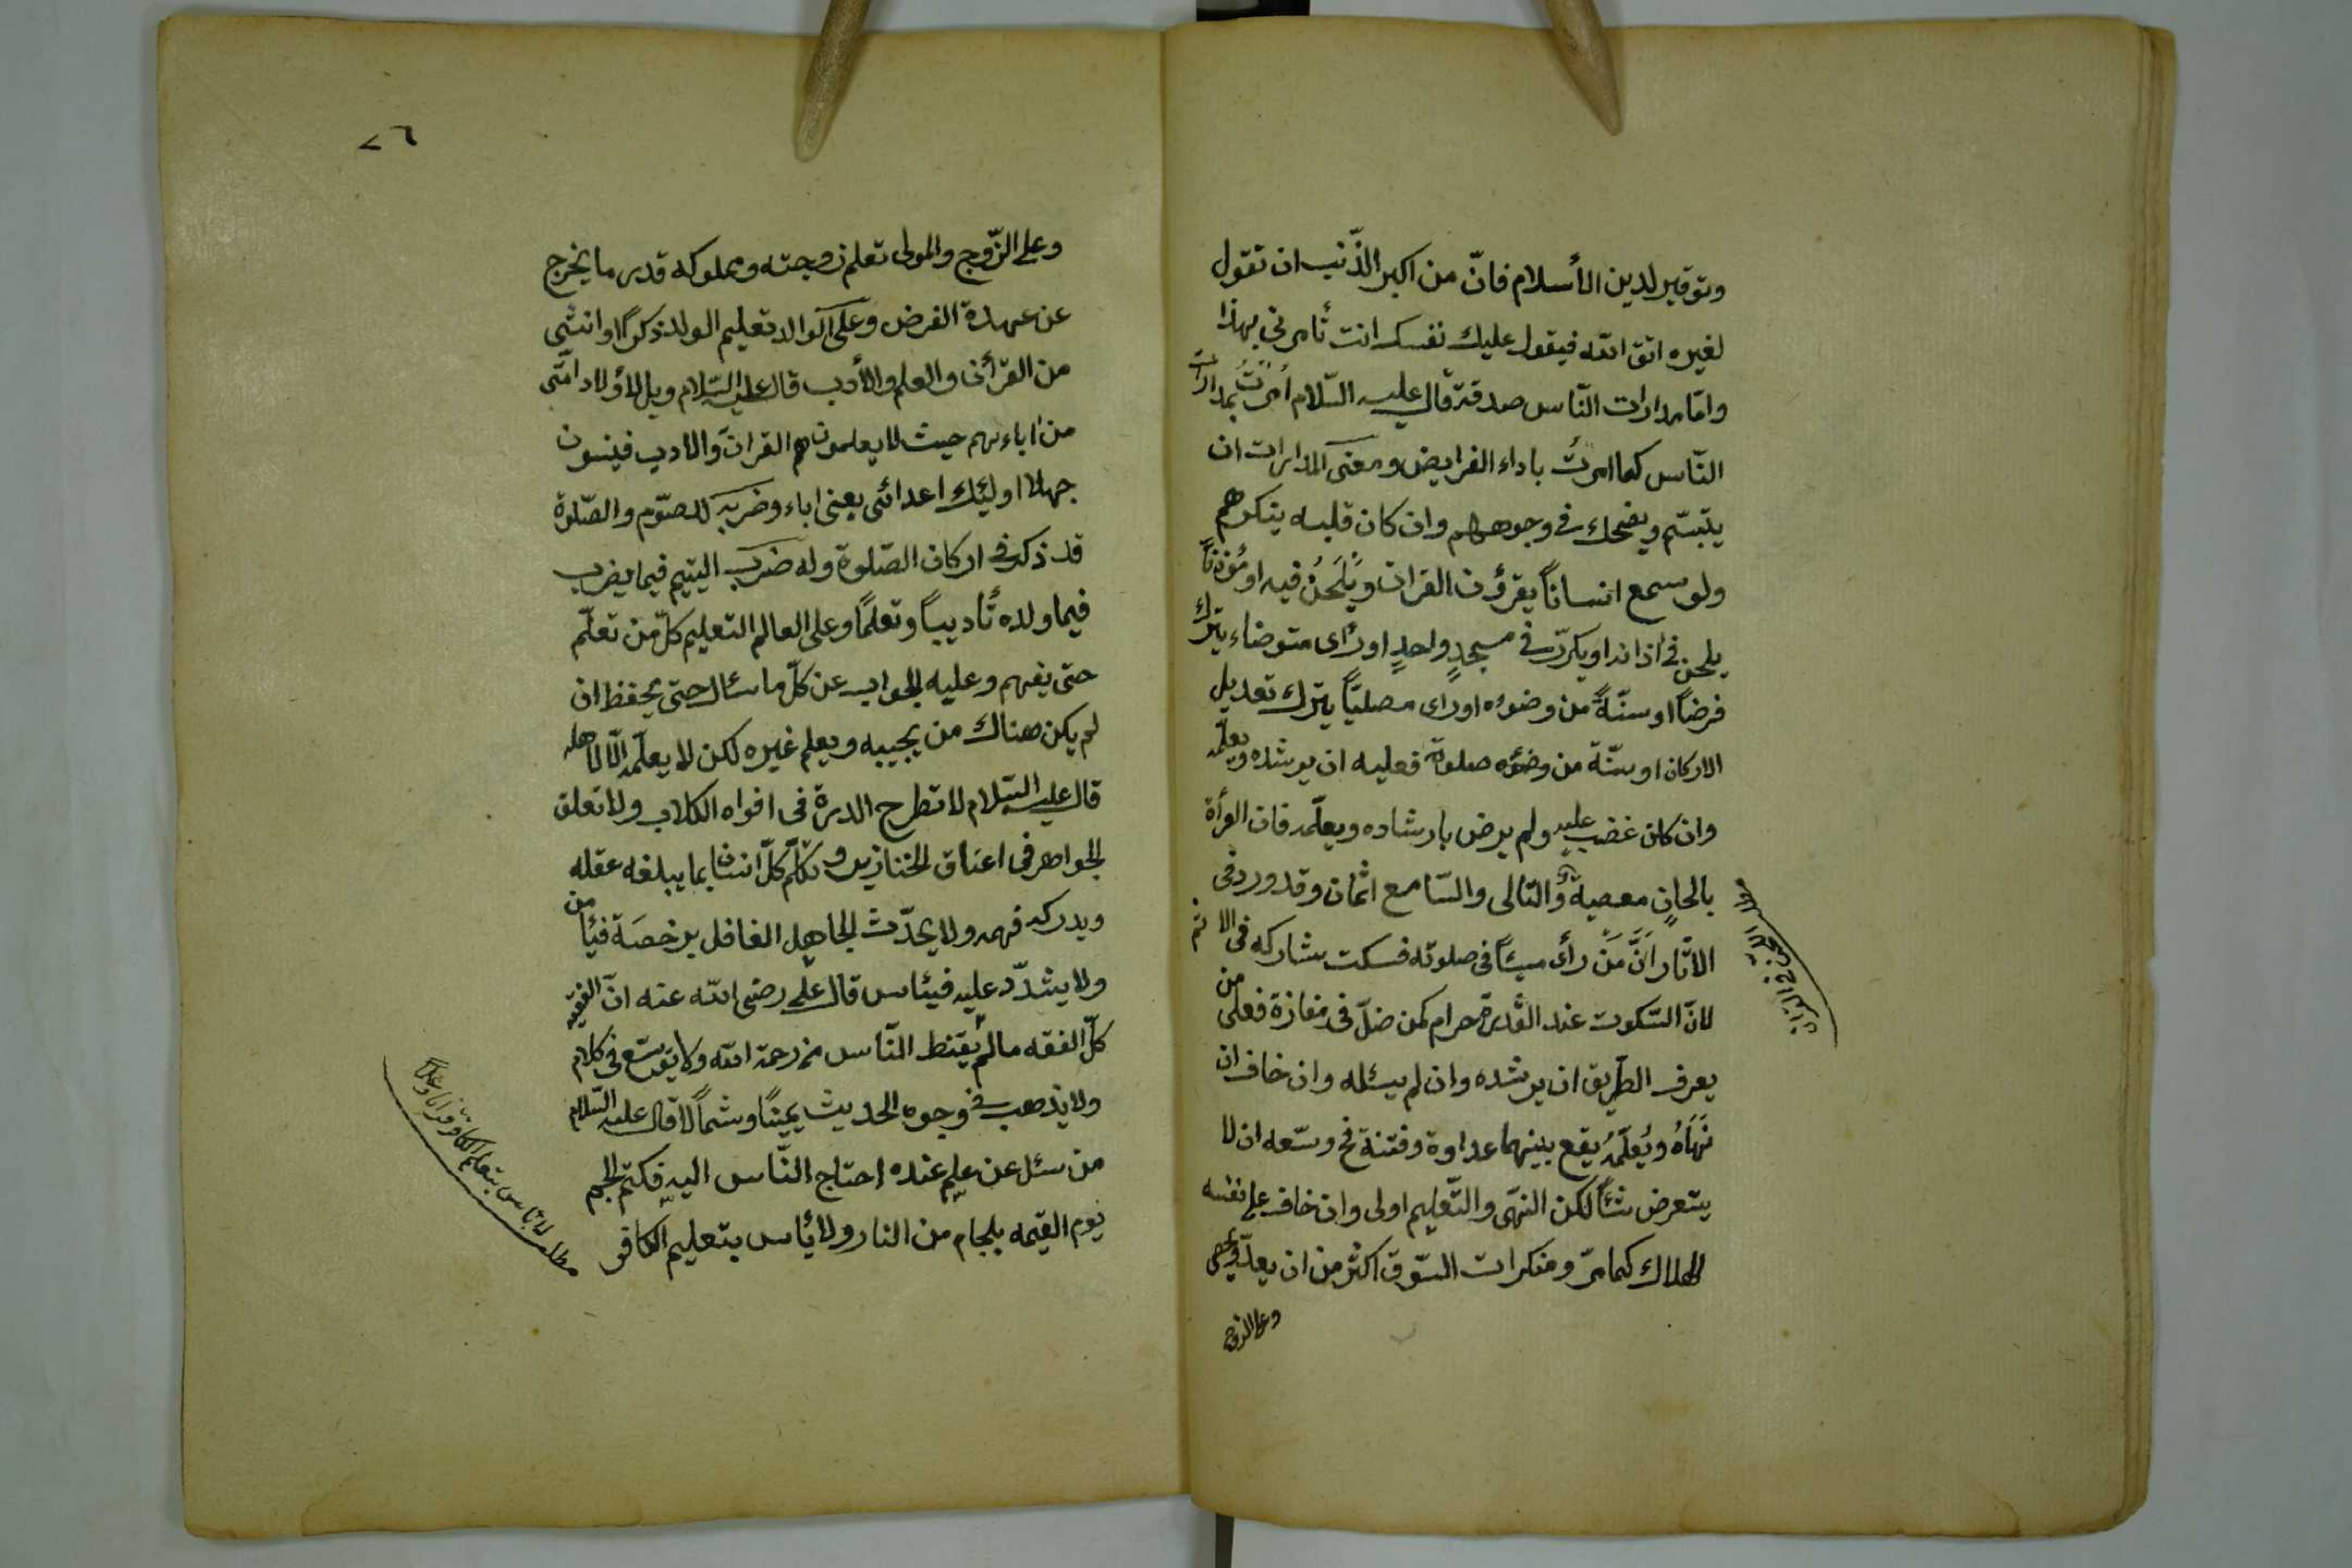 وتوقير لدين الأسلام فانّ من اكبر الذّنب ان تقول
لغيره اتق الله فيقول عليك نفسك انت تأمرنى بهذا
وامّا مدارات النّاس صدقة قال عليه السّلام اُمرتُ بمدارات
النّاس كما امرتُ باداء الفرايض ومعنى المدارات ان
يتبسّم ويضحك فى وجوههم وان كان قلبه ينكرهم
ولو سمع انساناً يقرؤن القران ويَلحَنُ فيه او مُؤذناً
يلحن فى اذانه او يكرّر فى مسجدٍ واحدٍ او رأى متوضاء يترك
فرضاً او سنّةً من وضوءه او راى مصليّاً يترك تعديل
الاركان او سنّة من وضوءه صلوة فعليه ان يرشده ويعلّمه
وان كان غضب عليه ولم يرض بارشاده ويعلّمه فان القرأة
بالحانٍ معصية والتالى والسّامع اثمان وقد ورد فى
الاثار اَنَّ مَنْ رأى مسيئاً فى صلوته فسكت شاركه فى الاثم
لانّ السّكوت عند القُدرة حرام كمن ضلّ فى مفازة فعلى من
يعرف الطّريق ان يرشده وان لم يسئله وان خاف ان
نَهَاهُ ويُعَلّمُه يقع بينهما عداوة وفتنة فح وسّعه ان لا
يتعرض شئاً لكن النهّى والتّعليم اولى وان خاف على نفسه
الهلاك كما مرّ ومنكرات السّوق اكثر من ان يعدّ ويحصى
وعلى الزوج
٢٦
وعلى الزّوج والمولى تعلم زوجته ومملوكه قدر ما يخرج
عن عهدة الفرض وعلى الوالد تعليم الولد ذكرًا او انثى
من القرأن والعلم والأدب قال عليه السّلام ويل لأولاد امّتى
من اباءهم حيث لا يعلمونهم القران والادب فينسون
جهلا اوليئك اعدائى يعنى اباء وضربه للصّوم والصّلوة
قد ذكر فى اركان الصّلوة وله ضرب اليتيم فيما يضرب
فيما ولده تأديباً وتعلمًا وعلى العالم التعليم كلّ من تعلّم
حتى يفهم وعليه الجواب عن كلّ ما سئال حتى يحفظ ان
لم يكن هناك من يجيبه ويعلم غيره لكن لا يعلّمه الّا لاهله
قال عليه السّلام لا تطرح الدرة فى افواه الكلاب ولا تعلق
الجواهر فى اعناق الخنازير وتكلّم كلّ انسان بما يبلغه عقله
ويدركه فهمه ولا يحدّث الجاهل الغافل برخصَة فيئا من
ولا يشدّد عليه فيئاس قال على رضى الله عنه انّ الفقيه
كلّ الفقه ما لم يُقنط النّاس من رحمة الله ولا يوسّع فى كلام
ولا يذهب فى وجوه الحديث يمينًا وشمالًا قال عليه السّلام
من سئل عن علم عنده احتاج النّاس اليه فكتم الجم
يوم القيمه بلجام من النار ولا يأس بتعليم الكافر
مطلب لا بأس بتعليم الكافر قرانا وعلما